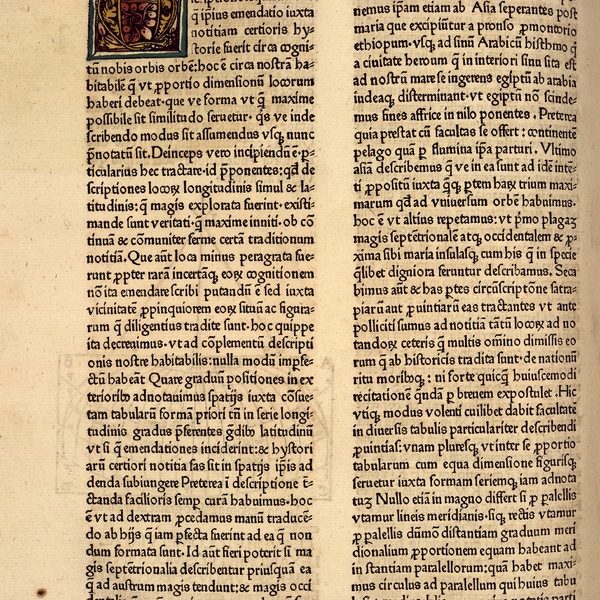 q ipius emendatio iuxta
notitiam certioris hy⸗
storie fuerit circa cogni⸗
tũ nobis orbis orbẽ:hoc ẽ circa nostrã ha⸗
bitabilẽ q̃ vt ꝓportio dimensionũ locorum
haberi debeat·que ve forma vt q̃ maxime
possibile sit similitudo seruetur· q̃s ve inde
scribendo modus sit assumendus vsq̨ nunc
p̃notatũ sit.Deinceps vero incipiendũ ẽ·p⸗
ticularius hec tractare·id p̃ponentes:qđ de
scriptiones locoꝝ longitudinis simul & la⸗
titudinis:q̃ magis explorata fuerint·existi⸗
mande sunt veritati·q̃ maxime inniti·ob cõ
tinuã & cõmuniter ferme certã traditionum
notitiã.Que aũt loca minus peragrata fue⸗
runt ꝓpter rarã incertãq̨ eoꝝ cognitionem
nõ ita emendare scribi putandũ ẽ sed iuxta
vicinitatẽ ꝓpinquiorem eoꝝ situũ ac figura⸗
rum q̃ diligentius tradite sunt·hoc quippe
ita decreuimus·vt ad cõplementũ descripti
onis nostre habitabilis:nulla modũ imꝑfe⸗
ctũ habeãt Quare graduũ positiones in ex
teriorib⁹ adnotauimus spatijs iuxta cõsue⸗
tam tabularũ formã priori tñ in serie longi⸗
tudinis gradus p̃ferentes g̃dib⁹ latitudinũ
vt si q̃ emendationes inciderint:& hystori
arũ certiori notitia fas sit in spatijs ip̃is ad
denda subiungere Preterea ĩ descriptione ẽ⸗
ctanda facilioris semp curã habuimus·hoc
ẽ vt ad dextram ꝓcedamus manũ traducẽ⸗
do ab hijs q̃ iam ꝑfecta fuerint ad ea q̃ non
dum formata sunt·Id aũt fieri poterit si ma
gis septẽtrionalia describentur priusquã ea
q̃ ad austrum magis tendunt:& magis occi
nemus ip̃am etiam ab Asia seperantes post
maria que excipiũtur a pronso ꝓmontorio
ethiopum·vsq̨ ad sinũ Arabicũ histhmo q̃
a ciuitate heroum q̃ in interiori sinu sita est
ad nostrũ mare se ingerens egiptũ ab arabia
iudeaq̨ disterminat·vt egiptũ nõ scinde⸗
mus fines affrice in nilo ponentes . Preterea
quia prestat cũ facultas se offert : continentẽ
pelago quã p flumina ip̃a parturi. Vltimo
asiã describemus q̃ ve in ea sunt ad idẽ intẽ⸗
ti ꝓpositũ iuxta q̃q̨ p̱tem haꝝ trium maxi⸗
marum qđ ad vniuersum orbẽ habuimus·
hoc ẽ vt altius repetamus:vt p̃mo plagaꝝ
magis septẽtrionalẽ atq̨ occidentalem & ꝓ⸗
xima sibi maria insulasq̨ cum his q̃ in specie
q̃libet digniora feruntur describamus. Seca
bimus aũt & has p̱tes circũscriptõne satra⸗
piarũ aut ꝓuintiarũ eas tractantes vt ante
polliciti sumus ad notitiã tãtũ locoꝝ ad no
tandoꝝ ceteris q̃ multis om̃ino dimissis eo
rum q̃ ab historicis tradita sunt·de nationũ
ritu morib⁹q̨ : ni forte quicq̃ huiuscemodi
recitationẽ quãdã p breuem expostulet .Hic
vtiq̨ modus volenti cuilibet dabit facultatẽ
in diuersis tabulis particulariter describendi
ꝓuintias:vnam pluresq̨ vt inter se ꝓportio
tabularum cum equa dimensione figurisq̨
seruetur iuxta formam seriemq̨ iam adnota
tuꝝ Nullo etiã in magno differt si p palellis
vtamur lineis meridianis·sicq̨ rectis vtamur
p palellis dũmõ distantiam graduum meri
dionalium ꝓportionem equam habeant ad
in stantiam parallelorum:quã habet maxi⸗
mus circulus ad parallelum quibuius tabu